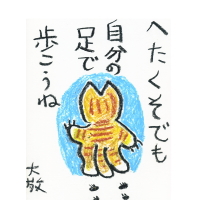 へたくそでも
自分の
足で
歩こうね
大敬